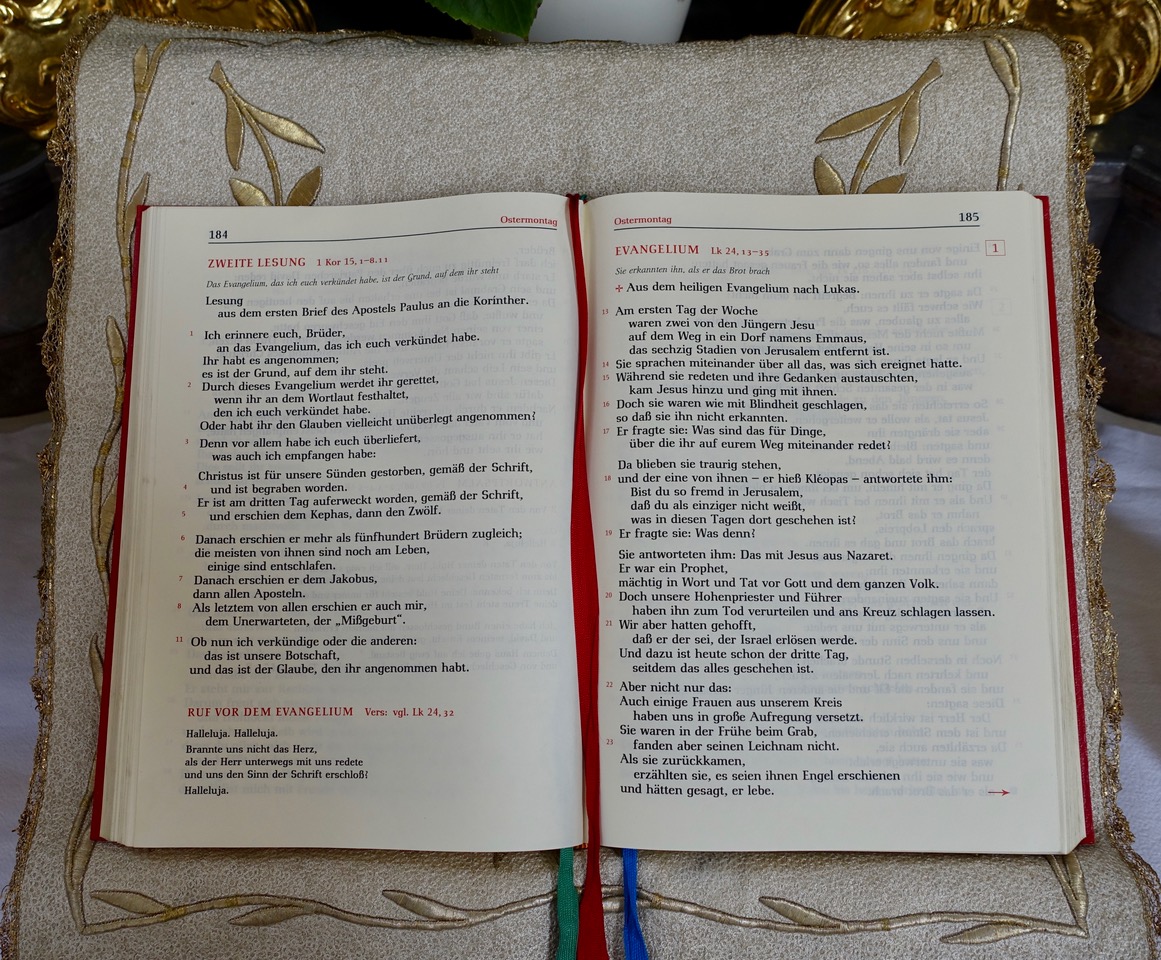 184
Ostermontag
ZWEITE LESUNG 1 Kor 15, 1–8.11
Das Evangelium, das ich euch verkündet habe, ist der Grund, auf dem ihr steht
Lesung
aus dem ersten Brief des Apostels Paulus an die Korinther.
1 Ich erinnere euch, Brüder,
an das Evangelium, das ich euch verkündet habe.
Ihr habt es angenommen;
es ist der Grund, auf dem ihr steht.
2 Durch dieses Evangelium werdet ihr gerettet,
wenn ihr an dem Wortlaut festhaltet,
den ich euch verkündet habe.
Oder habt ihr den Glauben vielleicht unüberlegt angenommen?
3 Denn vor allem habe ich euch überliefert,
was auch ich empfangen habe:
Christus ist für unsere Sünden gestorben, gemäß der Schrift,
4 und ist begraben worden.
Er ist am dritten Tag auferweckt worden, gemäß der Schrift,
5 und erschien dem Kephas, dann den Zwölf.
6 Danach erschien er mehr als fünfhundert Brüdern zugleich;
die meisten von ihnen sind noch am Leben,
einige sind entschlafen.
7 Danach erschien er dem Jakobus,
dann allen Aposteln.
8 Als letztem von allen erschien er auch mir,
dem Unerwarteten, der „Mißgeburt“.
11 Ob nun ich verkündige oder die anderen:
das ist unsere Botschaft,
und das ist der Glaube, den ihr angenommen habt.
RUF VOR DEM EVANGELIUM Vers: vgl. Lk 24, 32
Halleluja. Halleluja.
Brannte uns nicht das Herz,
als der Herr unterwegs mit uns redete
und uns den Sinn der Schrift erschloß?
Halleluja.
Ostermontag
185
EVANGELIUM Lk 24, 13–35
1
Sie erkannten ihn, als er das Brot brach
✢ Aus dem heiligen Evangelium nach Lukas.
13 Am ersten Tag der Woche
waren zwei von den Jüngern Jesu
auf dem Weg in ein Dorf namens Emmaus,
das sechzig Stadien von Jerusalem entfernt ist.
14 Sie sprachen miteinander über all das, was sich ereignet hatte.
15 Während sie redeten und ihre Gedanken austauschten,
kam Jesus hinzu und ging mit ihnen.
16 Doch sie waren wie mit Blindheit geschlagen,
so daß sie ihn nicht erkannten.
17 Er fragte sie: Was sind das für Dinge,
über die ihr auf eurem Weg miteinander redet?
Da blieben sie traurig stehen,
18 und der eine von ihnen – er hieß Kléopas – antwortete ihm:
Bist du so fremd in Jerusalem,
daß du als einziger nicht weißt,
was in diesen Tagen dort geschehen ist?
19 Er fragte sie: Was denn?
Sie antworteten ihm: Das mit Jesus aus Nazaret.
Er war ein Prophet,
mächtig in Wort und Tat vor Gott und dem ganzen Volk.
20 Doch unsere Hohenpriester und Führer
haben ihn zum Tod verurteilen und ans Kreuz schlagen lassen.
21 Wir aber hatten gehofft,
daß er der sei, der Israel erlösen werde.
Und dazu ist heute schon der dritte Tag,
seitdem das alles geschehen ist.
22 Aber nicht nur das:
Auch einige Frauen aus unserem Kreis
haben uns in große Aufregung versetzt.
Sie waren in der Frühe beim Grab,
23 fanden aber seinen Leichnam nicht.
Als sie zurückkamen,
erzählten sie, es seien ihnen Engel erschienen
und hätten gesagt, er lebe.